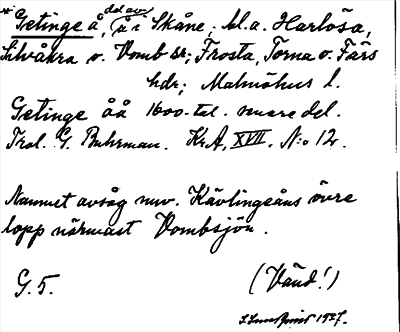 * Getinge å, del av å i Skåne; bl.a. Harlösa,
Silvåkra o. Vomb sr; Frosta, Torna o. Färs
hdr; Malmöhus l.
Getinge åå 1600-tal. senare del.
Trol. G. Buhrman. KrA, XVII. N:o 12.
Namnet avsåg nuv. Kävlingeåns övre
lopp närmast Vombsjön.
G. 5.
(Vänd!)
1937.